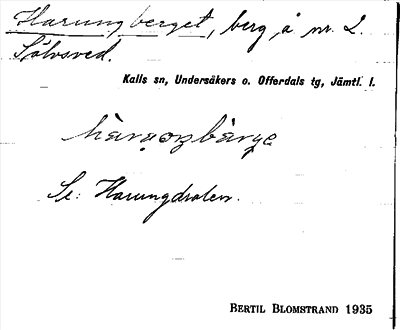 Harungberget, berg å nr. 2
Sölvsved.
Kalls sn, Undersåkers o. Offerdals tg, Jämtl. l.
Se: Harungdralen.
BERTIL BLOMSTRAND 1935